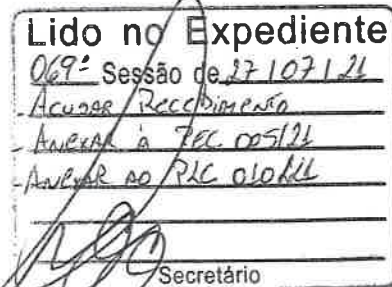 Lido no Expediente
069ª Sessão de 27/07/21
- Acusar Recebimento
- Anexar à PEC 005/21
- Anexar ao PLC 010/21
Secretário